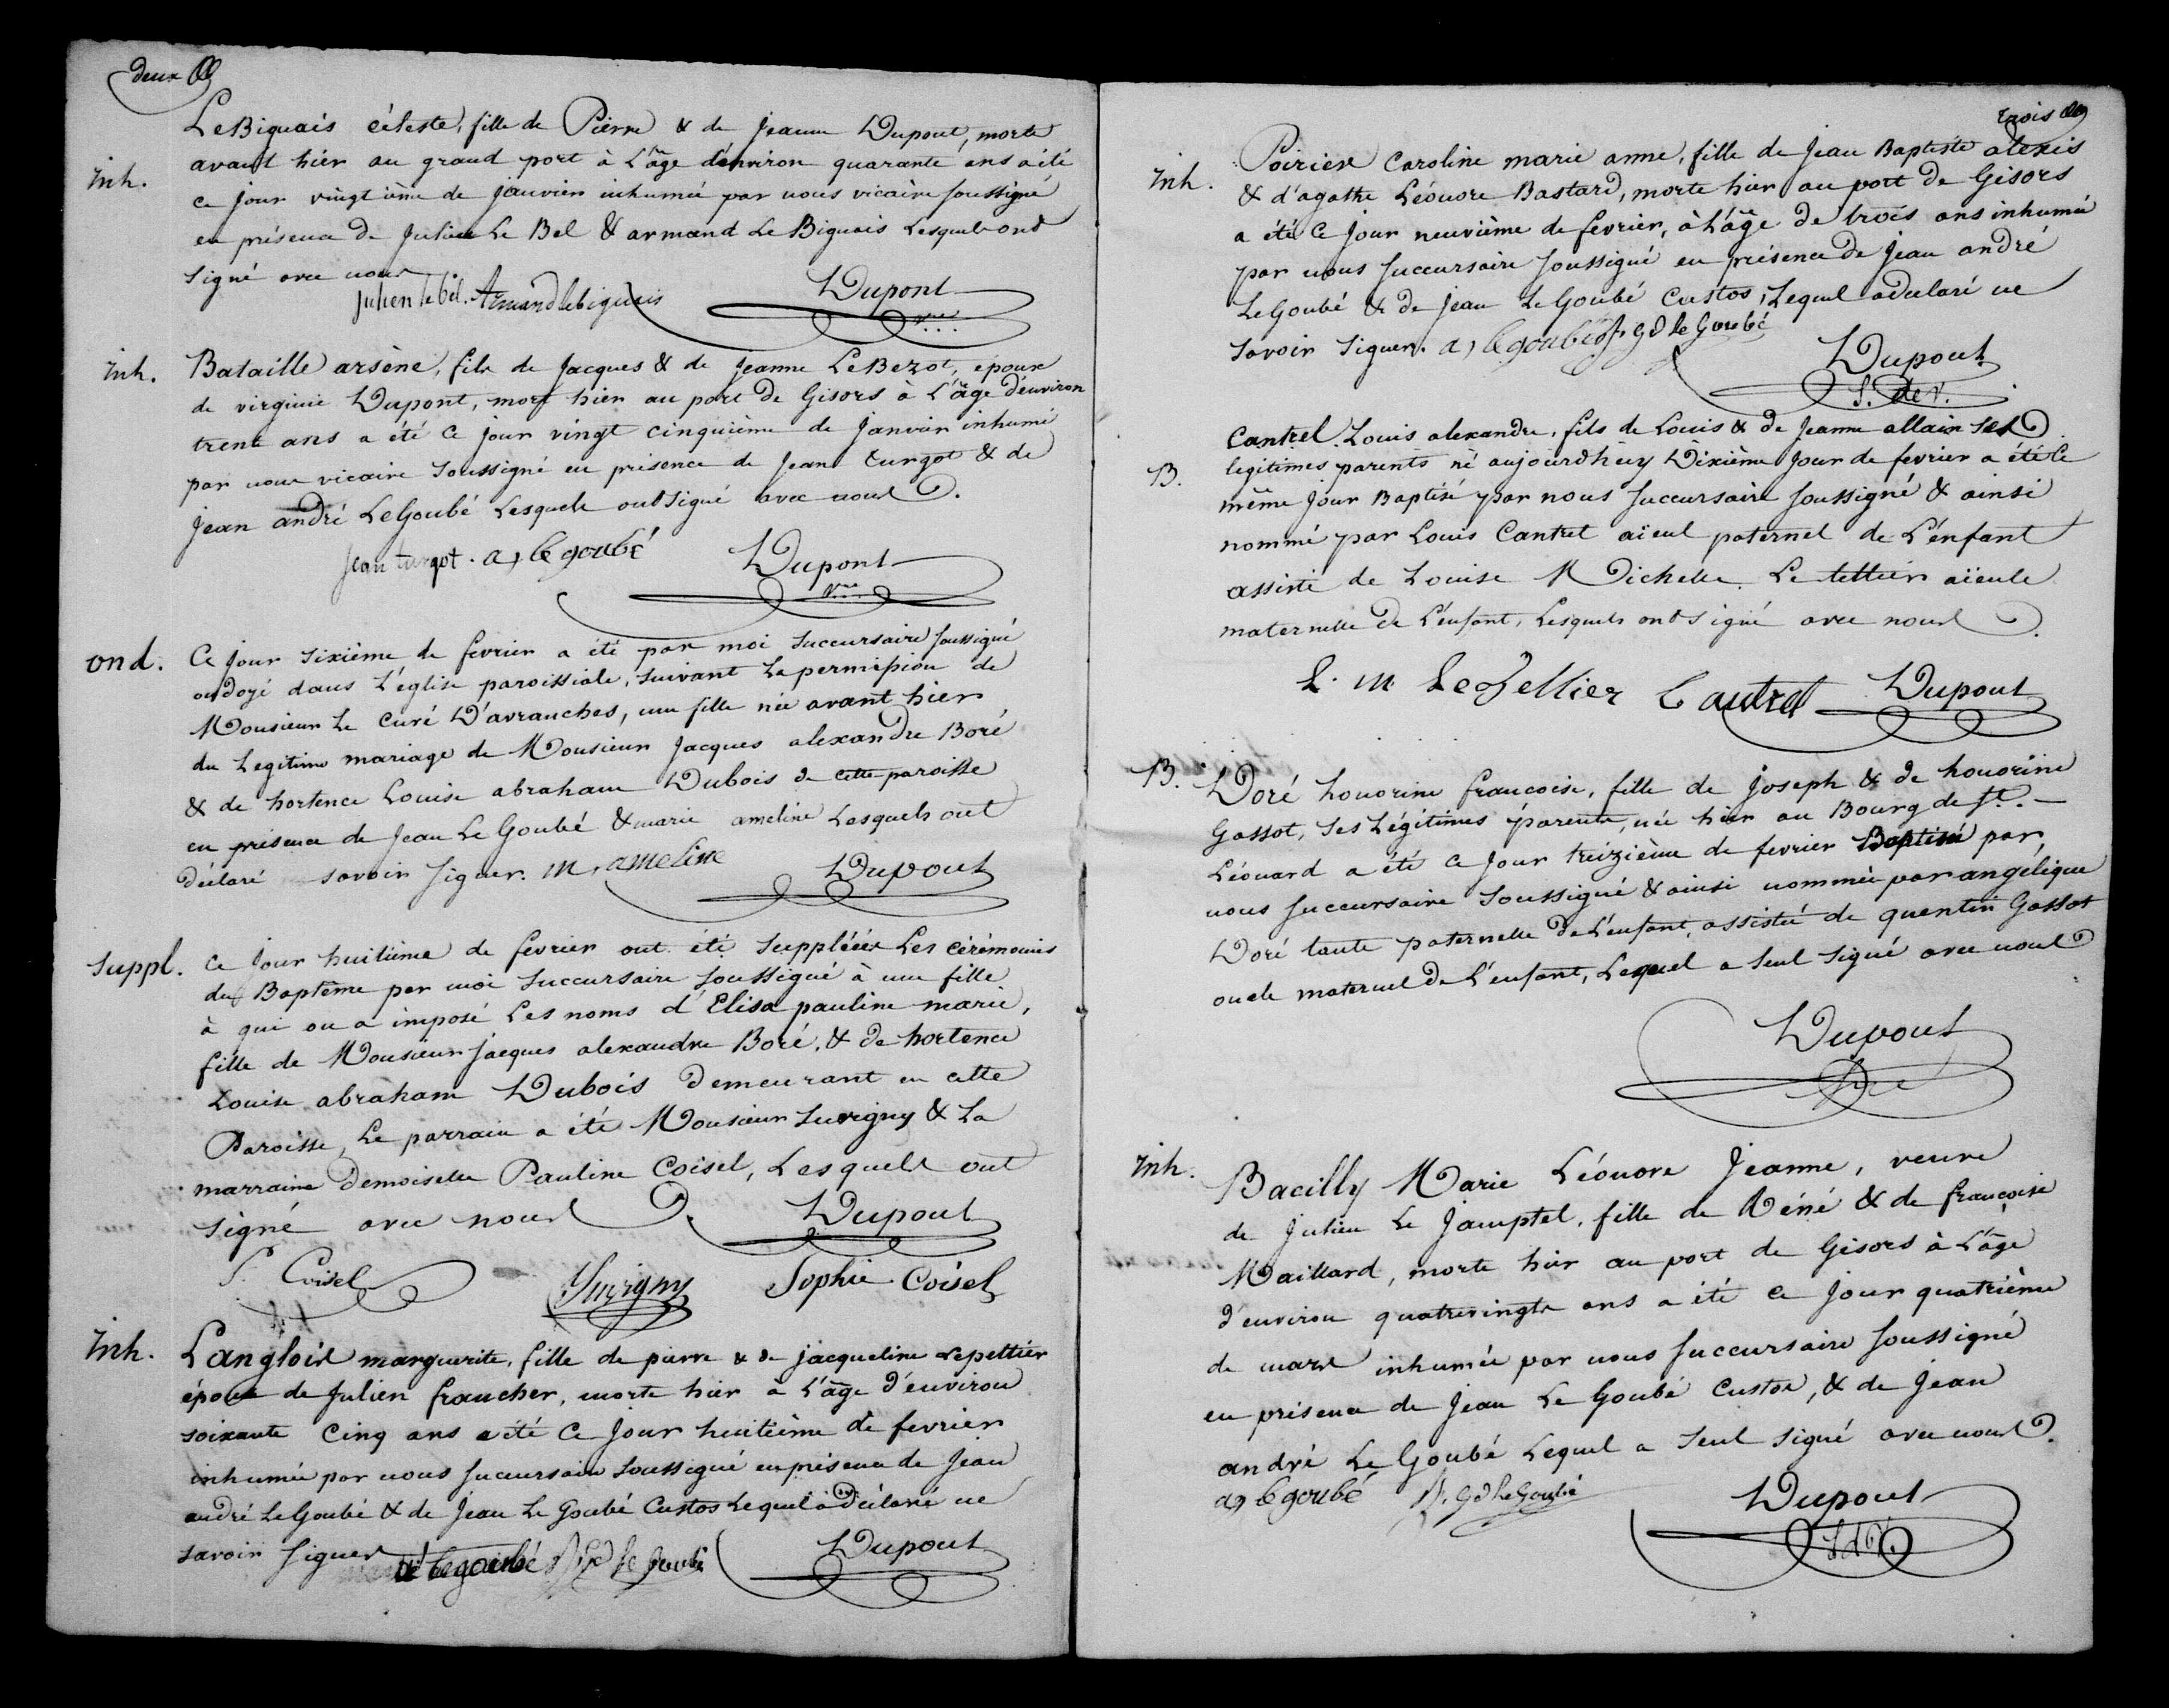 deux
LeBiguais céleste, fille de Pierre & de jeanne Dupont, morte
inh.
avant hier au grand port à L'âge d'environ quarante ans a été
ce jour vingtième de janvier inhumée par nous vicaire soussigné
en présence de Julien Le Bel & armand Le Biguais Lesquels ont
signé avec nous
julien le bel. Armand lebiguais Dupont
vre.
inh.
Bataille arsène, fils de Jacques & de Jeanne LeBezot, epoux
de virginie Dupont, mort hier au port de Gisors à L'âge d'environ
trente ans a été ce jour vingt cinquième de janvier inhumé
par nous vicaire soussigné en présence de Jean turgot & de
jean andré LeGoubé Lesquels ont signé avec nous.
jean turgot. a, legoubé Dupont
vre.
ond.
Ce jour sixième de fevrier a été par moi succursaire soussigné
ondoyé dans L'eglise paroissiale, suivant La permission de
Monsieur Le curé D'avranches, une fille née avant hier
du Legitime mariage de Monsieur Jacques alexandre Boré
& de hortence Louise abraham Dubois de cette paroisse
en présence de Jean Le Goubé & marie ameline Lesquels ont
déclaré savoir signer. m, ameline Dupont
suppl.
Ce jour huitième de fevrier ont été suppléées Les cérémonies
du Baptême par moi succursaire soussigné à une fille
à qui on a imposé Les noms d'Elisa pauline marie,
fille de Monsieur jacques alexandre Boré, & de hortence
Louise abraham Dubois demeurant en cette
Paroisse, Le parrain a été Monsieur Suvigny & La
marraine demoiselle Pauline Coisel, Lesquels ont
signé avec nous Dupont
P. Coisel Suvigny Sophie Coisel
inh.
Langlois marguerite, fille de pierre & de jacqueline Lepeltier
épouse de Julien francher, morte hier à L'âge d'environ
soixante cinq ans a été ce jour huitième de fevrier
inhumée par nous succursaire soussigné en présence de Jean
andré LeGoubé & de Jean Le Goubé Custos Lequel a déclaré ne
savoir signer
a, legoubé Le Goubé Dupont
trois
inh.
Poirier Caroline marie anne, fille de Jean Baptiste alexis
& d'agathe Léonore Bastard, morte hier au port de Gisors
a été ce jour neuvième de fevrier, à L'âge de trois ans inhumée
par nous succursaire soussigné en présence de Jean andré
LeGoubé & de jean Le Goubé Custos, Lequel a declaré ne
savoir signer. a, legoubé Le Goubé
Dupont
S. de V.
Cantrel Louis alexandre, fils de Louis & de Jeanne allain ses
B.
legitimes parents né aujourdhuy Dixième jour de fevrier a été ce
même jour Baptisé par nous succursaire soussigné & ainsi
nommé par Louis Cantrel aïeul paternel de L'enfant
assisté de Louise Michelle Le tellier aïeule
maternelle de L'enfant, Lesquels ont signé avec nous
L. M. LeTellier Cantrel Dupont
B.
Doré honorine francoise, fille de joseph & de honorine
Gassot, ses Légitimes parents, née hier au Bourg de St. -
Léonard a été ce jour treizième de fevrier Baptisée par
nous succursaire soussigné & ainsi nommée par angélique
Doré tante paternelle de L'enfant, assistée de quentin Gassot
oncle maternel de L'enfant, Lequel a seul signé avec nous
Dupont
inh.
Bacilly Marie Léonore Jeanne, veuve
de Julien Le Jamptel, fille de Réné & de françoise
Maillard, morte hier au port de Gisors à L'âge
d'environ quatrevingts ans a été ce jour quatrième
de mars inhumée par nous succursaire soussigné
en présence de Jean Le Goubé Custos, & de Jean
andré Le Goubé Lequel a seul signé avec nous.
a, legoubé Le Goubé
Dupont
S. d. V.